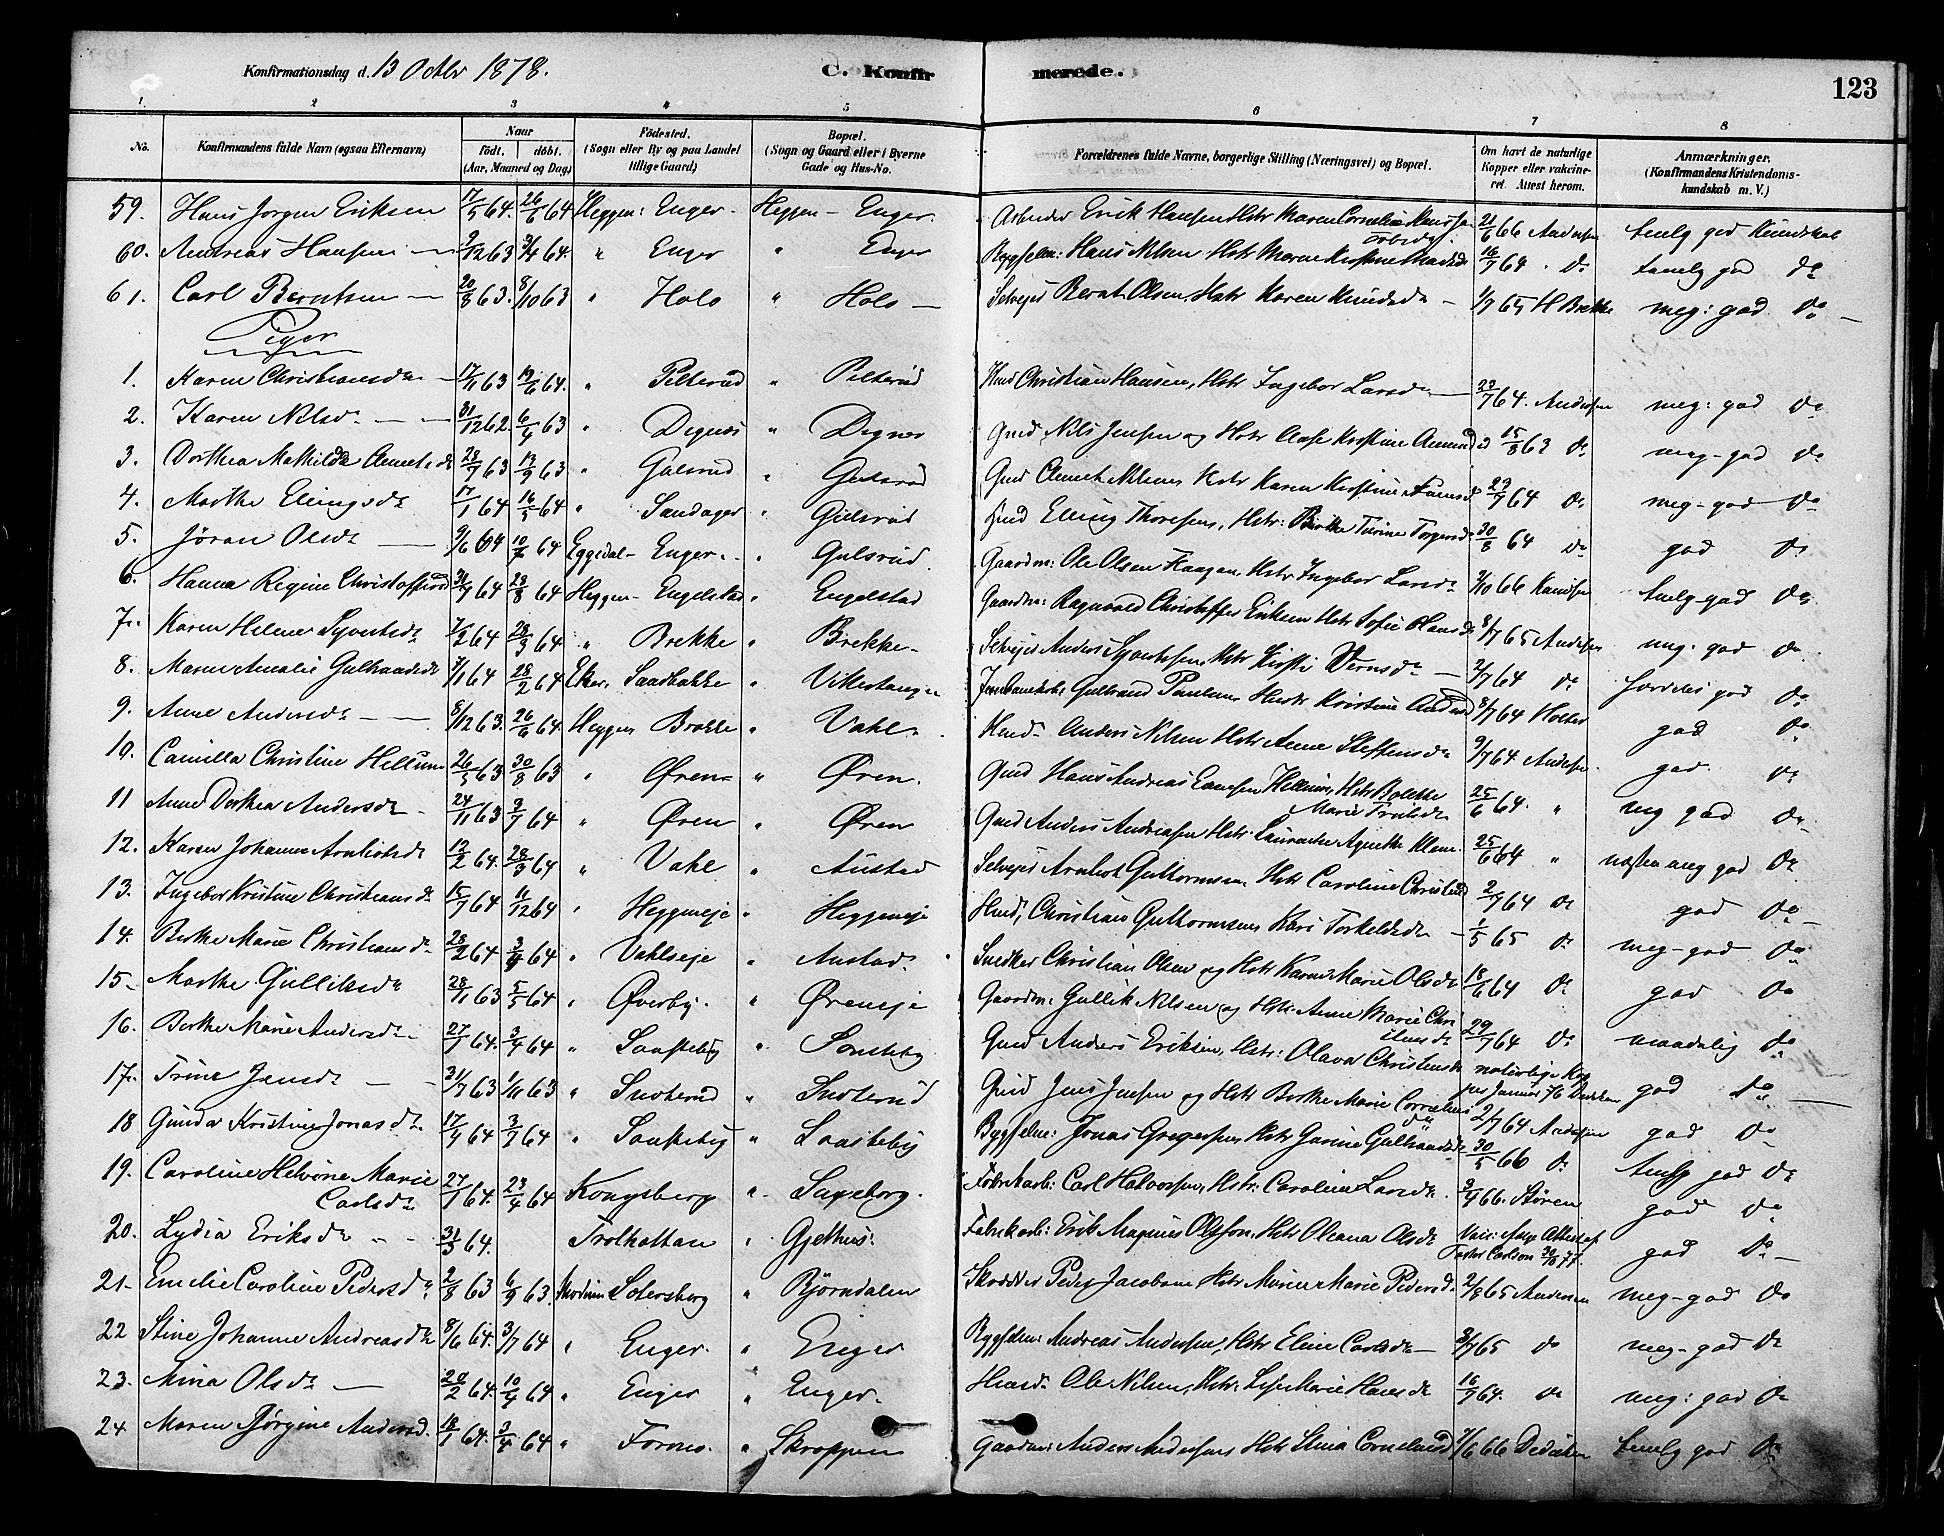 Konfirmationsdag d. 13 Octbr 1878. C. Konfirmerede. 123
1. 2 3 4 5 6 7 8
No. Konfirmandens fulde Navn (ogsaa Efternavn) Naar födt. döbt. (Aar, Maaned og Dag) Födested. (Sogn eller By og paa Landet tillige Gaard) Bopæl. (Sogn og Gaard eller i Byerne Gade og Hus-No. Forældrenes fulde Navne, borgerlige Stilling (Næringsvei) og Bopæl. Om havt de naturlige Kopper eller vakcineret. Attest herom. Anmærkninger. (Konfirmandens Kristendomskundskab m. V.)
59. Hans Jørgen Eriksen 17/5 64. 26/6 64 Heggen: Enger. Heggen - Enger. Arbeider Erik Hansen Hstr Maren Cornelia 21/6 66 Andersen temlg god Kundskab
60. Andreas Hansen 9/12 63 3/4 64. " Enger " Enger Bygselm: Hans Nilsen Hstr Maren Kirstine 16/7 64 do temlg god do
61. Carl Berntsen 20/8 63. 8/10 63 " Hols " Hols Selvejer Bernt Olsen, Hstr Karen Knudsdr 1/7 65 H Brekke meg: god do
Piger
1. Karen Christiansdr 17/11 63 19/6 64. " Pilterud " Pilterud Hmd Christian Hansen, Hstr Ingebor Larsdr 23/7 64. Andersen meg: god do
2. Karen Nilsdr 31/12 62. 6/4 63 " Degnes " Degnes Gmd Nils Jensen og Hstr Aase Kirstine 15/8 63 do meg-god do
3. Dorthea Mathilde 28/7 63 13/9 63 " Gulsrud " Gulsrud Gmd Nilsen Hstr Karen Kirstine 23/7 64 do meg-god do
4. Marthe Ellingsdr 17/1 64 16/5 64 " Sandager " Gulsrud Hmd Elling Thoresen, Hstr: Berthe Turine Torgersdr 30/8 64 do god do
5. Jøran Olsdr 9/6 64 10/7 64 Eggedal- Enger " Gulsrud. Gaardm: Ole Olsen Haagen, Hstr Ingebor Larsdr 9/10 66 Knudsen temlg-god do
6. Hanna Regine Christoffersd 31/7 64 28/8 64 Heggen- Engelstad " Engelstad Gaardm: Ragnvald Christoffer Eriksen Hstr Sofie Hansdr 8/7 65 Andersen meg: god do
7. Karen Helene Syversdr 7/2 64 28/3 64 " Brekke " Brekke Selvejer Anders Syvertsen, Hstr Kirsti 2/7 64 do særdeles god do
8. Maren Amalie Gulbrandsdr 7/1 64 28/2 64 Eker, Saasbakke " Vikestangen Gulbrand Paulsen Hustr Kirstine 8/7 64 Holter god do
9. Anne Andersdr 8/12 63. 26/6 64 Heggen Brekke " Vahl Hmd Anders Nilsen Hstr Anne Steffensdr 9/7 64 Andersen god do
10. Camilla Christine Hellum 26/5 63 30/8 63 " Øren " Øren. Gmd Hans Andreas Hellum, Hstr Bolette Marie 25/6 64. " meg god do
11 Anne Dorthea Andersdr 24/11 63 3/7 64 " Øren " Øren Gmd Anders Andreasen Hstr Agnethe 25/6 64 " næsten meg god do
12. Karen Johanne Arnbotsdr 12/2 64. 28/3 64 " Vahl " Austad Selvejer Arnbot Guttormsen Hstr Caroline 2/7 64 do god do
13. Ingebor Kristine Christiansdr 15/7 64. 11/12 64 " Heggeneje " Heggeneje Hmd, Christian Guttormsen Kari Torkelsdr 1/5 65 do meg-god do
14. Berthe Marie Christiansdr 28/2 64 3/4 64 " Vahlseje " Austad Snedker Christian Olsen og Hstr Karen Marie Olsdr 18/6 64 do god do
15- Marthe Gulliksdr 28/11 63 5/5 64 " Øverby. " Øreneje Gaardm: Gullik Nilsen og Hstr. Anne Marie 29/7 64 do maadelig do
16. Berthe Marie Andersdr 27/1 64. 3/4 64 " Saasteby " Saasteby Gmd Anders Eriksen, Hstr: Olava naturlige Kop god do
17. Trine Jensdr 31/7 63 1/11 63 " Snoterud " Snoterud Gmd Jens Jensen og Hstr Berthe Marie 2/7 64 Andersen god do
18 Gunda Kristine Jonasdr. 17/4 64 3/7 64 " Saasteby " Saasteby Bygselm: Jonas Gregersen, Hstr Gurine Gulbrandsdr 30/5 66 do temlg god do
19. Caroline Helvine Marie Carlsdr 27/1 64. 23/4 64 Kongsberg " Sageborg. Fabrikarb: Carl Halvorsen, Hstr: Caroline Larsdr. 3/9 66. Støren god do
20. Lydia Eriksdr 31/3 64. Trolhattan " Gjethus. Fabrikarb: Erik Magnus Olsson, Hstr Oleana Olsdr god do
21- Emilie Caroline Pedersdr 2/8 63 6/9 63. Modum Solersberg " Bjørndalen Skrædder Peder Jacobsen Hstr Maren Marie Pedersdr 2/8 65 Andersen meg-god do
22 Stine Johanne Andreasdr 8/6 64. 3/7 64 " Enger. " Enger Bygselm: Andreas Andersen, Hstr Eline Carlsdr 3/7 65 do meg-god do
23. Mina Olsdr 20/2 64. 10/4 64 " Enger " Enger. Husmd. Ole Nilsen, Hstr: Lise Marie Hansdr 16/7 64. do meg: god do
24 Maren Jørgine Andersd. 18/1 64. 3/4 64 " Fornes. " Skroppen Gaardm: Anders Andersen Hstr Stina 7/6 66 Dedichen temlg god do